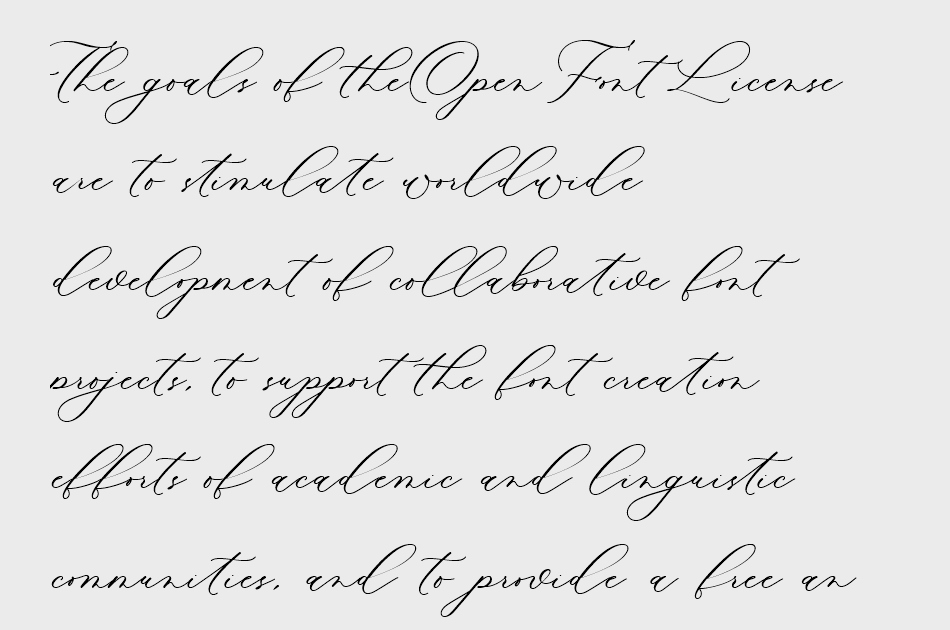 The goals of the Open Font License
are to stimulate worldwide
development of collaborative font
projects, to support the font creation
efforts of academic and linguistic
communities, and to provide a free an